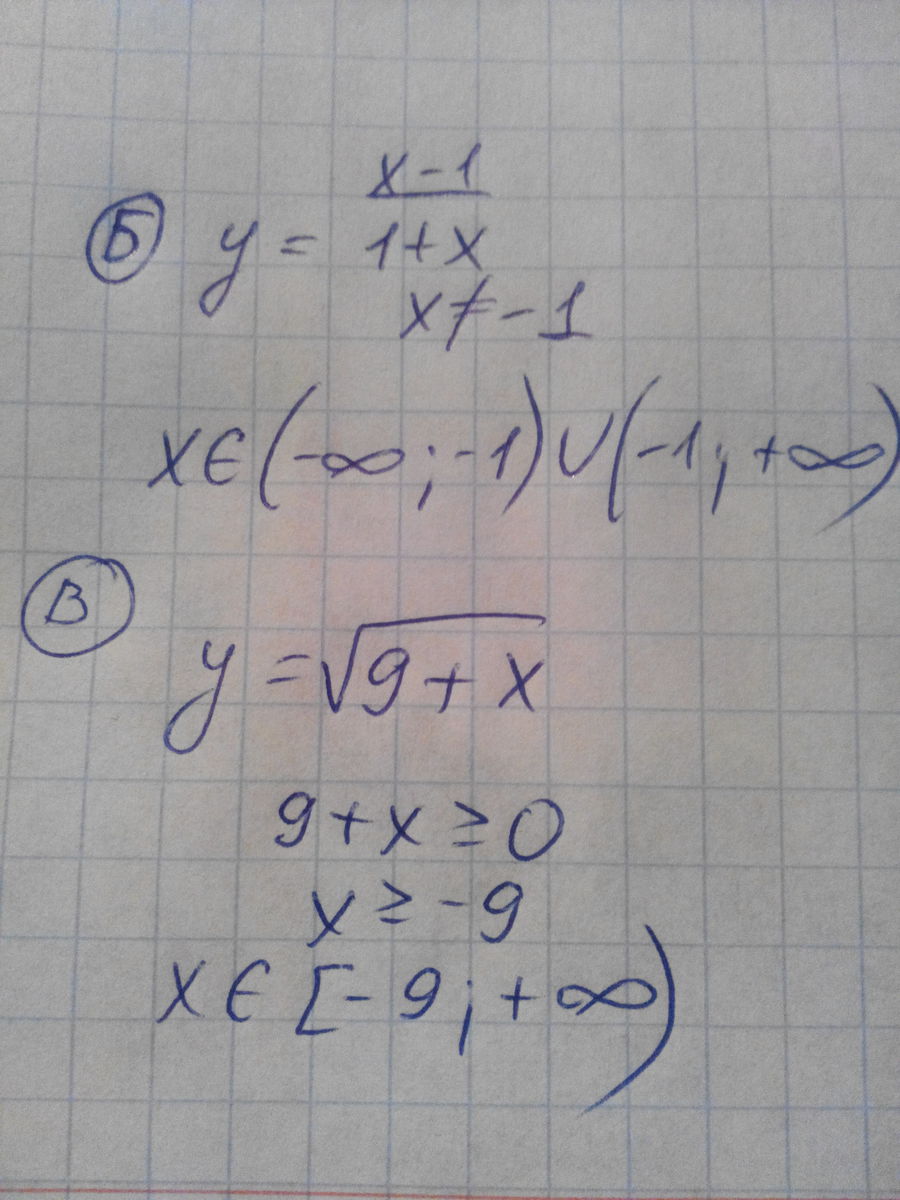 Б y = x-1
1+x
x≠-1
x∈(-∞;-1)∪(-1;+∞)
В
y=√9+x
9+x≥0
x≥-9
x∈[-9;+∞)